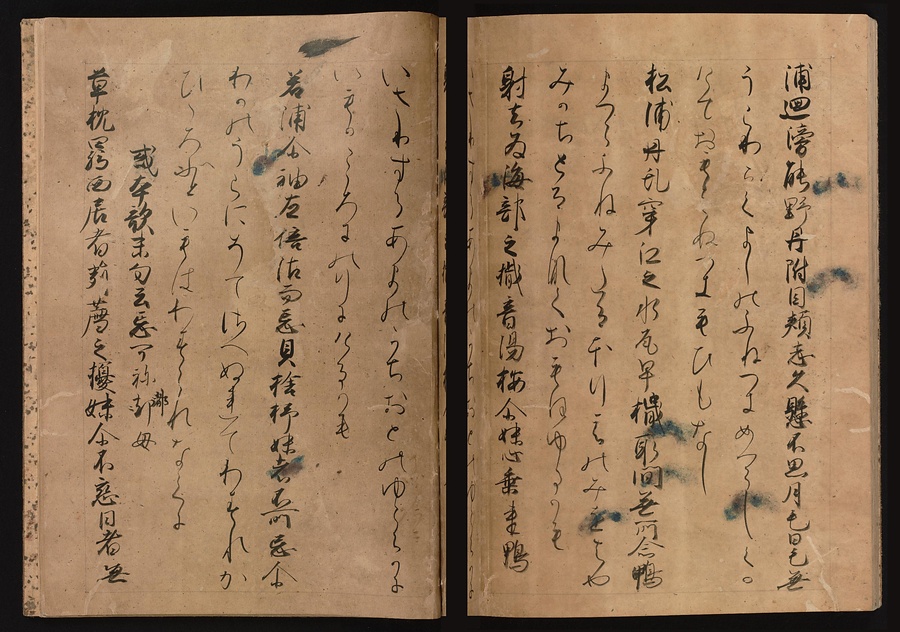 浦廻滂能野丹附目頬志久懸不思月毛日毛無
うらわこくよしのふねつきめつらしく
かけておもはぬつきもひもなし
松浦丹乱穿江之水尾早檝取間無所念鴨
まつらふねみたるほりえのみをはや
みかちとるまなくおもほゆるかも
射去為海部之檝音湯桉尓妹心乗来鴨
いさりするあまのかちおとのゆくらかに
いもかこゝろにのりにけるかも
若浦尓袖左倍沾而忘貝拾杼妹者不所忘尓
わかのうらにそてさへぬれてわすれか
ひひろへといもはわすられなくに
或本歌末句云忘可祢都母
草枕羈西居者苅薦之擾妹尓不恋日者無